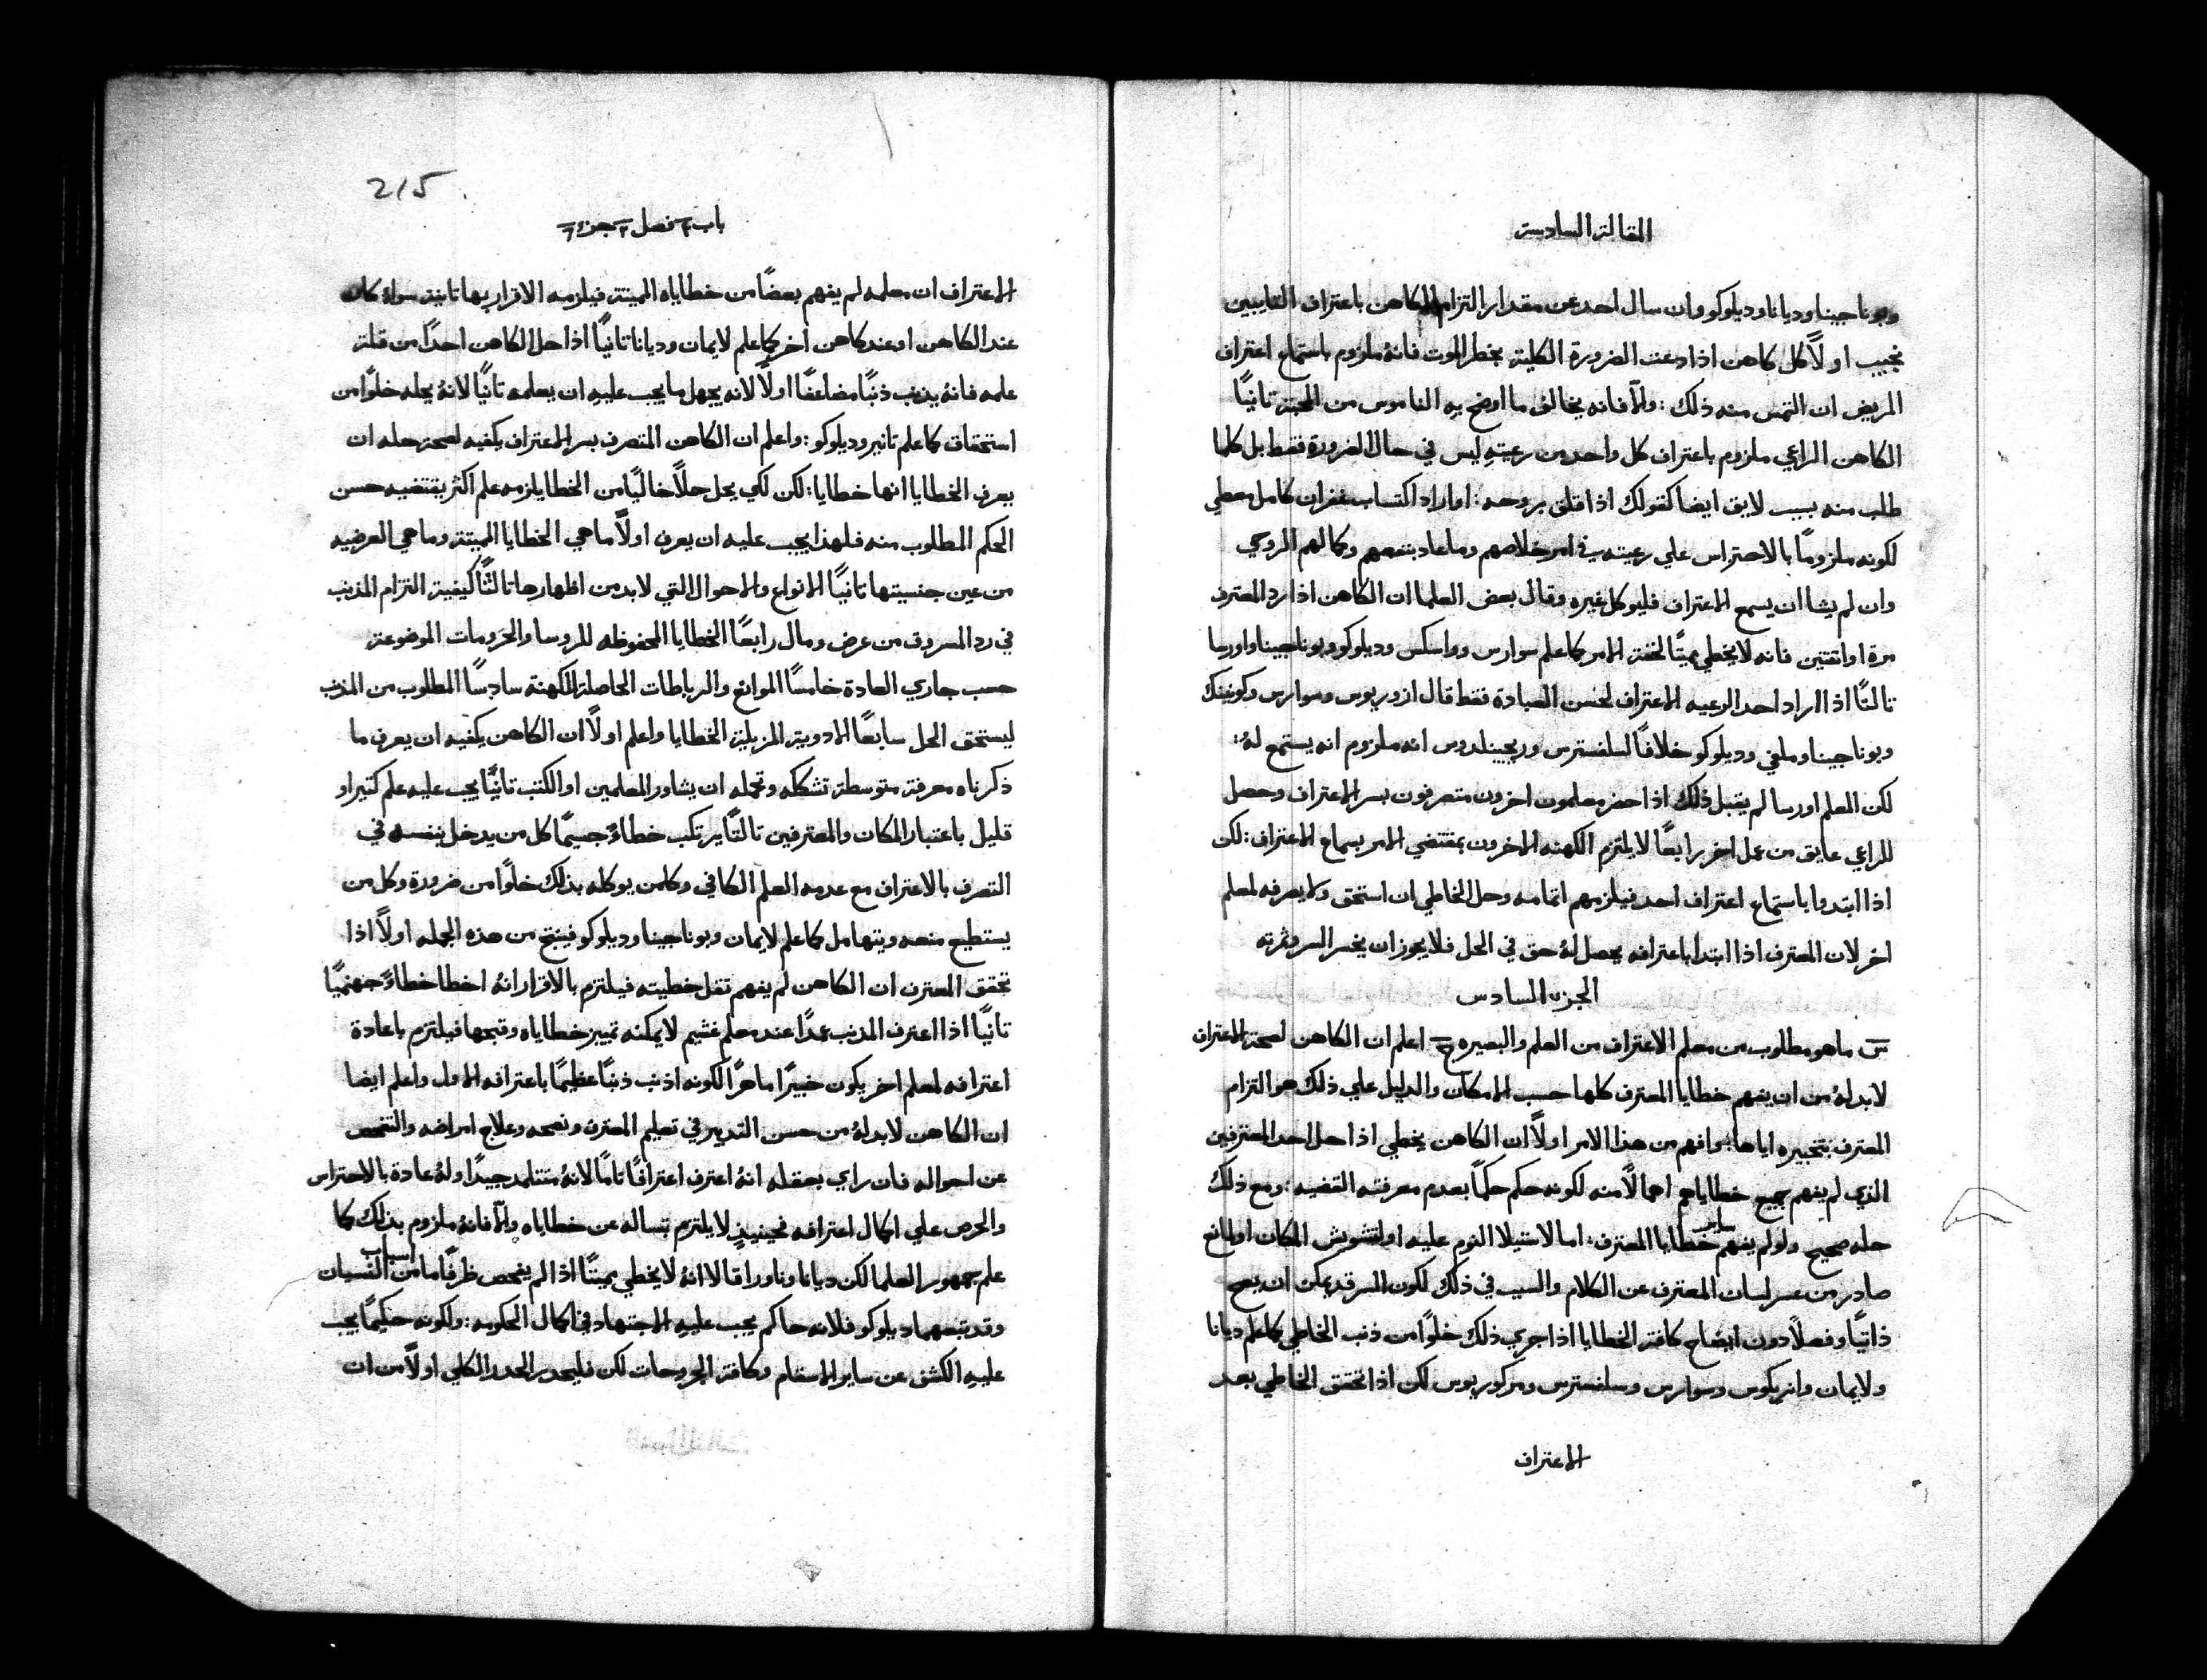 المقالة السادسة
وبوناجينا وديانا وديلوكو وان سال احد عن مقدار التزام الكاهن باعتراف التايبين
نجيب اولاً كل كاهن اذا دعت الضرورة الكلية بخطر الموت فانهُ ملزوم باستماع اعتراف
المريض ان التمس منه ذلك : والّا فانه يخالف ما اوضح به الناموس من المحبة ثانياً
الكاهن الراعي ملزوم باعتراف كل واحد من رعيتهِ ليس في حال الضرورة فقط بل كلما
طلب منه بسبب لايق ايضا كقولك اذا قلق بروحه : او اراد اكتساب غفران كامل معطي
لكونه ملزوماً بالاحتراس علي رعيته في امر خلاصهم وما عاد بنفعهم وكمالهم الروحي
وان لم يشا ان يسمع الاعتراف فليوكل غيره وقال بعض العلما ان الكاهن اذا رد المعترف
مرة او اثنتين فانه لا يخطي مميتاً لخفة الامر كما علم سوارس وواسكس وديلوكو وبوناجينا واورسا
ثالثاً اذا اراد احد الرعيه الاعتراف لحسن العبادة فقط قال ازوريوس وسوارس وكونينك
وبوناجينا وملفي وديلوكو خلافاً لسلفسترس وريجينلدوس انه ملزوم انه يستمع لهُ :
لكن المعلم اورسا لم يقبل ذلك اذا حضر معلمون اخرون متصرفون بسر الاعتراف وحصل
للراعي عايق من عمل اخر رابعاً لا يلتزم الكهنه الاخرون بمقتضي الامر بسماع الاعتراف : لكن
اذا ابتدوا باستماع اعتراف احد فيلزمهم اتمامه وحل الخاطي ان استحق ولا يصرفه لمعلم
اخر لان المعترف اذا ابتدا باعترافه يحصل لهُ حق في الحل فلا يجوز ان يخسر السر وثمرته
الجزء السادس
س ما هو مطلوب من معلم الاعتراف من العلم والبصيره ج اعلم ان الكاهن لصحة الاعتراف
لابد لهُ من ان يفهم خطايا المعترف كلها حسب الامكان والدليل علي ذلك هو التزام
المعترف بتخبيره اياها : وافهم من هذا الامر اولاً ان الكاهن يخطي اذا حل احد المعترفين
الذي لم يفهم جميع خطاياهم اهمالاً منه لكونه حكم حكماً بعدم معرفته القضيه : ومع ذلك
حله صحيح ولو لم يفهم ساير خطايا المعترف : اما لاستيلا النوم عليه او لتشويش المكان او لمانع
صادر من عسر لسان المعترف عن الكلام والسبب في ذلك لكون السر قد يمكن ان يصح
ذاتياً وفصلاً دون ايضاح كافة الخطايا اذا جري ذلك خلواً من ذنب الخاطي كما علم ديانا
ولايمان وانريكوس وسوارس وسلفسترس ومركوريوس لكن اذا تحقق الخاطي بعد
الاعتراف
215
باب ٦ فصل ٢ جزء ٦
الاعتراف ان معلمه لم يفهم بعضاً من خطاياه المميتة فيلزمه الاقرار بها ثانية سواء كان
عند الكاهن او عند كاهن اخر كما علم لايمان وديانا ثانياً اذا حل الكاهن احداً من قلة
علمه فانهُ يذنب ذنباً مضاعفاً اولاً لانه يجهل ما يجب عليهِ ان يعلمه ثانياً لانهُ يحله خلواً من
استحقاق كما علم تانير وديلوكو : واعلم ان الكاهن المتصرف بسر الاعتراف يكفيه لصحة حله ان
يعرف الخطايا انها خطايا : لكن لكي يحل حلاً خالياً من الخطا يلزمه علم اكثر يقتضيه حسن
الحكم المطلوب منه فلهذا يجب عليه ان يعرف اولاً ما هي الخطايا المميتة وما هي العرضيه
من عين جنسيتها ثانياً الانواع والاحوال التي لابد من اظهارها ثالثاً كيفية التزام المذنب
في رد المسروق من عرض ومال رابعاً الخطايا المحفوظه للروسا والحرومات الموضوعة
حسب جاري العادة خامساً الموانع والرباطات الحاصلة للكهنة سادساً المطلوب من المذنب
ليستحق الحل سابعاً الادوية المزيلة الخطايا واعلم اولاً ان الكاهن يكفيه ان يعرف ما
ذكرناه معرفة متوسطة تشككه وتحمله ان يشاور المعلمين او الكتب ثانياً يجب عليه علم كثير او
قليل باعتبار المكان والمعترفين ثالثاً يرتكب خطاءً جسيماً كل من يدخل بنفسه في
التصرف بالاعتراف مع عدمه العلم الكافي وكلمن يوكله بذلك خلواً من ضرورة وكل من
يستطيع منعه ويتهامل كما علم لايمان وبوناجينا وديلوكو فينتج من هذه الجمله اولاً اذا
تحقق المعترف ان الكاهن لم يفهم ثقل خطيته فيلتزم بالاقرار انهُ اخطا خطاءً جهنمياً
ثانياً اذا اعترف المذنب عمداً عند معلم غشيم لا يمكنه تمييز خطاياه وقبحها فيلتزم باعادة
اعترافه لمعلم اخر يكون خبيراً ماهراً لكونه اذنب ذنباً عظيماً باعترافه الاول واعلم ايضا
ان الكاهن لابد لهُ من حسن التدبير في تعليم المعترف ونصحه وعلاج امراضه والتفحص
عن احواله فان راي بعقله انهُ اعترف اعترافاً تاماً لانهُ متتلمد جيداً ولهُ عادة بالاحتراس
والحرص علي اكمال اعترافه فحينيذٍ لا يلتزم بساله عن خطاياه والّا فانهُ ملزوم بذلك كما
علم جمهور العلما لكن ديانا وناورا قالا انهُ لا يخطي مميتاً اذا لم يفحص ظرفاً ما من اسباب النسيان
وقد تبعهما ديلوكو فلانه حاكم يجب عليهِ الاجتهاد في اكمال الحكومه : ولكونه حكيماً يجب
عليهِ الكشف عن ساير الاسقام وكافة الجروحات لكن فليحدر الحدر الكلي اولاً من ان